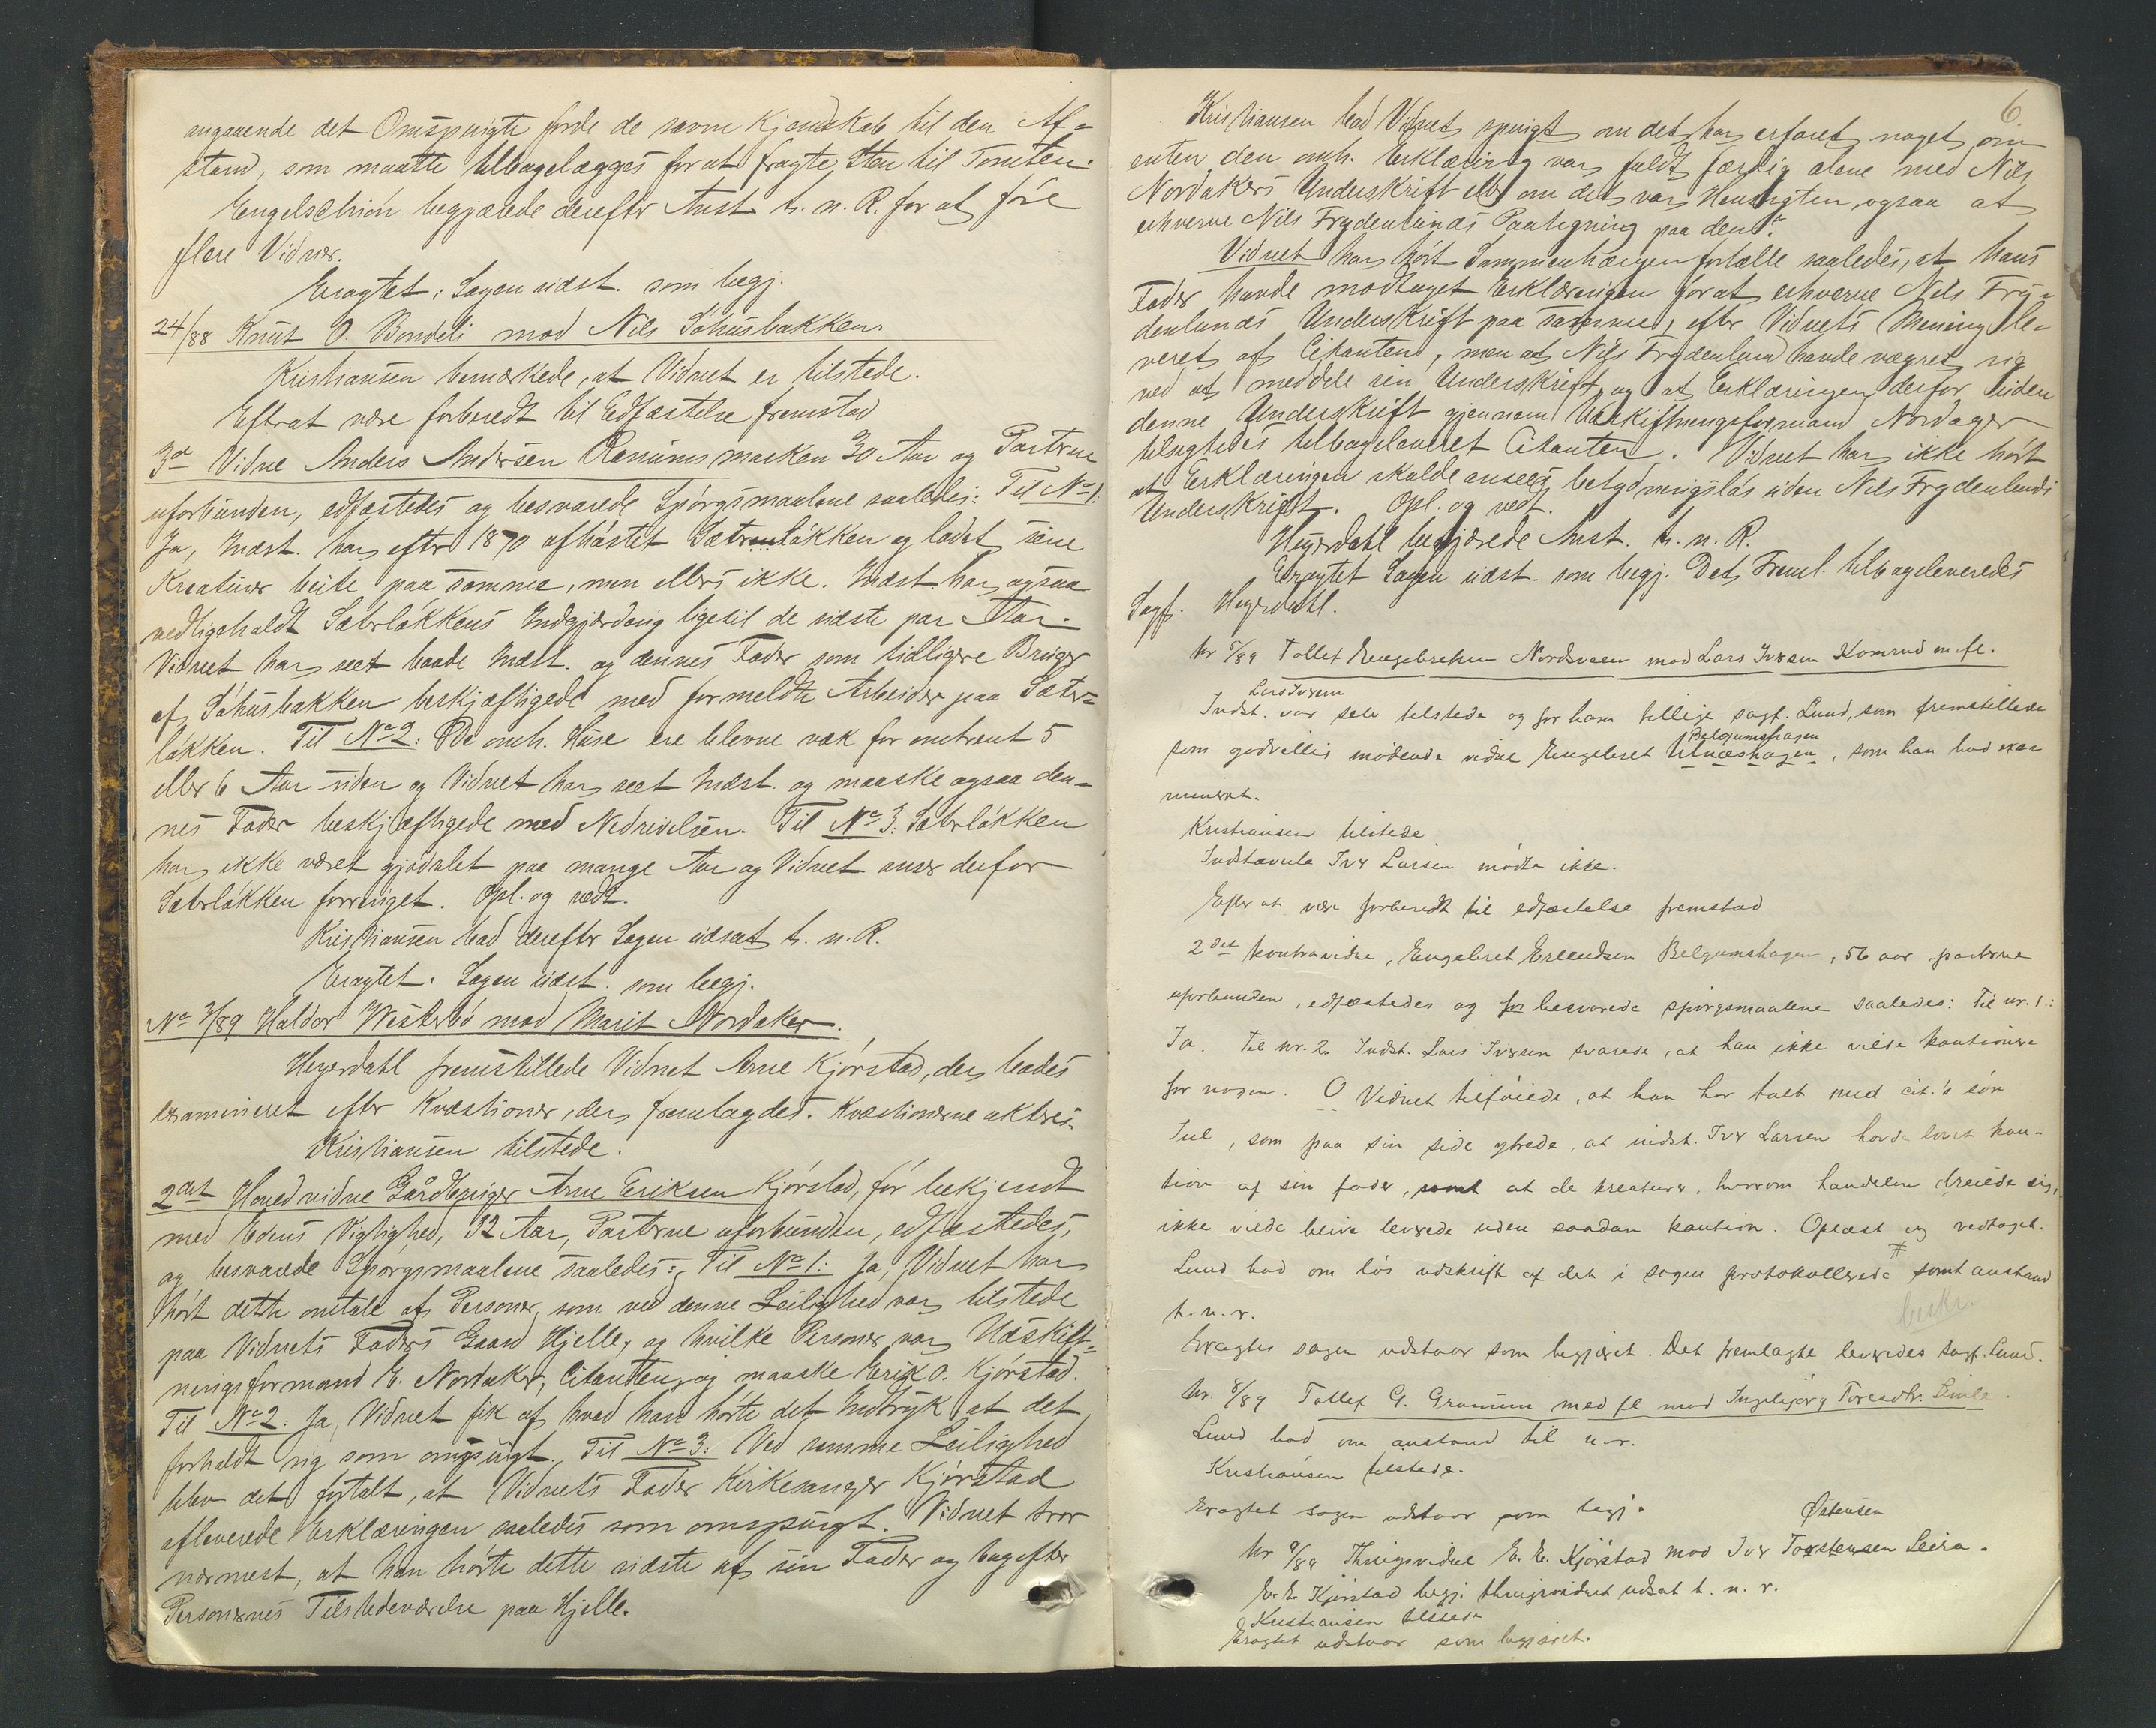 angaaende det Omspurgte fordi de savne Kjendskab til den Af-
stand, som maatte tilbagelægges for at fragte Sten til Tomten.
Engelschiøn begjærede derefter Anst. t. n. R. for at føre
flere Vidner.
Eragtet: Sagen udst. som begj.
24/88 Knut O. Bondeli mod Nils Sohusbakken
Kristiansen bemærkede, at Vidnet er tilstede.
Efterat være forberedt til Edfæstelse fremstod
3die Vidne Anders Andersen Ranumsmarken 30 Aar og Parterne
uforbunden, edfæstedes og besvarede Spørgsmaalene saaledes: Til No 1:
Ja, Indst. har efter 1870 afhøstet Sæterløkken og ladet sine
Kreaturer beite paa samme, men ellers ikke. Indst. har ogsaa
vedligeholdt Sæterløkkens Indgjærding ligetil de sidste par Aar.
Vidnet har seet baade Indst. og dennes Fader som tidligere Bruger
af Sohusbakken beskjæftigede med formeldte Arbeider paa Sæter-
løkken. Til No 2: De omh. Huse ere blevne væk for omtrent 5
eller 6 Aar siden og Vidnet har seet Indst. og maaske ogsaa den-
nes Fader beskjæftigede med Nedrivelsen. Til No 3: Sæterløkken
har ikke været gjødslet paa mange Aar og Vidnet anser derfor
Sæterløkken forringet. Opl. og vedt.
Kristiansen bad derefter Sagen udsat t. n. R.
Eragtet. Sagen udst. som begj.
No 3/89 Haldor Westerbø mod Marit Nordaker.
Heyerdahl fremstillede Vidnet Arne Kjørstad, der bades
examineret efter Kvæstioner, der fremlagdes. Kvæstionerne akteres.
Kristiansen tilstede.
2det Hovedvidne Gårdbruger Arne Eriksen Kjørstad, før bekjendt
med Edens Vigtighed, 32 Aar, Parterne uforbunden, edfæstedes,
og besvarede Spørgsmaalene saaledes: Til No 1: Ja, Vidnet har
hørt dette omtale af Personer, som ved denne Leilighed var tilstede
paa Vidnets Faders Gaard Hjelle, og hvilke Personer var Udskift-
ningsformand E. Nordaker, Citanten og maaske Erik O. Kjørstad.
Til No 2: Ja, Vidnet fik af hvad han hørte det Indtryk at det
forholdt sig som omspurgt. Til No 3: Ved samme Leilighed
blev det fortalt, at Vidnets Fader Kirkesanger Kjørstad
afleverede Erklæringen saaledes som omspurgt. Vidnet tror
nærmest, at han hørte dette sidste af sin Fader og bagefter
Personernes Tilstedeværelse paa Hjelle.
6
Kristiansen bad Vidnet spurgt om det har erfaret noget om
enten den omh. Erklæring var fuldt færdig alene med Nils
Nordakers Underskrift eller om det var Hensigten, ogsaa at
erhverve Nils Frydenlunds Paategning paa den?
Vidnet har hørt Sammenhængen fortælle saaledes, at hans
Fader havde modtaget Erklæringen for at erhverve Nils Fry-
denlunds Underskrift paa samme, efter Vidnets Mening le-
veret af Citanten, men at Nils Frydenlund havde vægret sig
ved at meddele sin Underskrift, og at Erklæringen derfor uden
denne Underskrift gjennem Udskiftningsformand Nordager
tilsigtedes tilbageleveret Citanten. Vidnet har ikke hørt
at Erklæringen skulde ansees betydningsløs uden Nils Frydenlunds
Underskrift. Opl. og vedt.
Heyerdahl begjærede Anst. t. n. R.
Eragtet Sagen udst. som begj. Det Freml. tilbageleveredes
Sagf. Heyerdahl.
Nr 5/89 Tollef Engebretsen Nordsveen mod Lars Iversen Komrud m. fl.
Lars Iversen
Indst. var selv tilstede og for ham tillige sagf. Lund, som fremstillede
Belgumshagen
som godvillig mødende vidne Engebret Ulnæshagen, som han bad exa-
mineret.
Kristiansen tilstede
Indstævnte Iver Larsen mødte ikke.
Efter at være forberedt til edfæstelse fremstod
2det kontravidne, Engebret Erlendsen Belgumshagen, 56 aar, parterne
uforbunden, edfæstedes og for besvarede spørgsmaalene saaledes: Til nr. 1:
Ja. Til nr. 2. Indst. Lars Iversen svarede, at han ikke vilde kautionere
for nogen. O Vidnet tilføiede, at han har talt med cit.'s søn
Jul, som paa sin side ytrede, at indst. Iver Larsen havde lovet kau-
tion af sin fader, samt at de kreaturer, hvorom handelen dreiede sig,
ikke vilde blive leverede uden saadan kaution. Oplæst og vedtaget.
Lund bad om løs udskrift af det i sagen protokollerede # samt anstand
t. n. r.
beskr.
Eragtes sagen udstaar som begjæret. Det fremlagte leveredes sagf. Lund.
Nr. 8/89 Tollef G. Gramim med fl mod Ingebjørg Toresdtr. Linle.
Lund bad om anstand til n. r.
Kristiansen tilstede.
Eragtet sagen udstaar som begj.
Østensen
Nr 9/89 Thingsvidne E. E. Kjørstad mod Iver Torstensen Leira.
E. E. Kjørstad begj. thingsvidnet udsat t. n. r.
Kristiansen tilstede
Eragtet udstaar som begjæret.